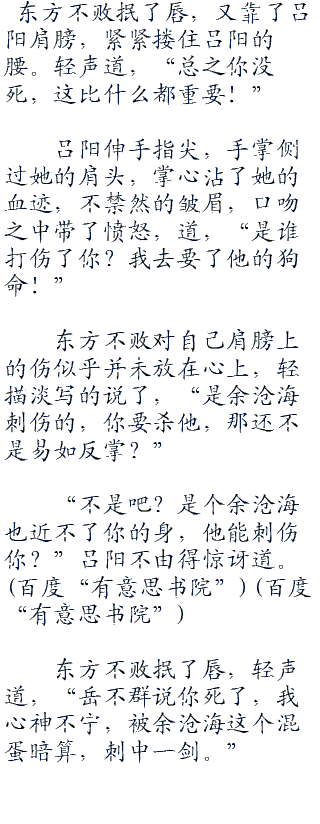 东方不败抿了唇，又靠了吕
阳肩膀，紧紧搂住吕阳的
腰。轻声道，“总之你没
死，这比什么都重要！”
吕阳伸手指尖，手掌侧
过她的肩头，掌心沾了她的
血迹，不禁然的皱眉，口吻
之中带了愤怒，道，“是谁
打伤了你？我去要了他的狗
命！”
东方不败对自己肩膀上
的伤似乎并未放在心上，轻
描淡写的说了，“是余沧海
刺伤的，你要杀他，那还不
是易如反掌？”
“不是吧？是个余沧海
也近不了你的身，他能刺伤
你？”吕阳不由得惊讶道。
(百度“有意思书院”)(百度
“有意思书院”)
东方不败抿了唇，轻声
道，“岳不群说你死了，我
心神不宁，被余沧海这个混
蛋暗算，刺中一剑。”